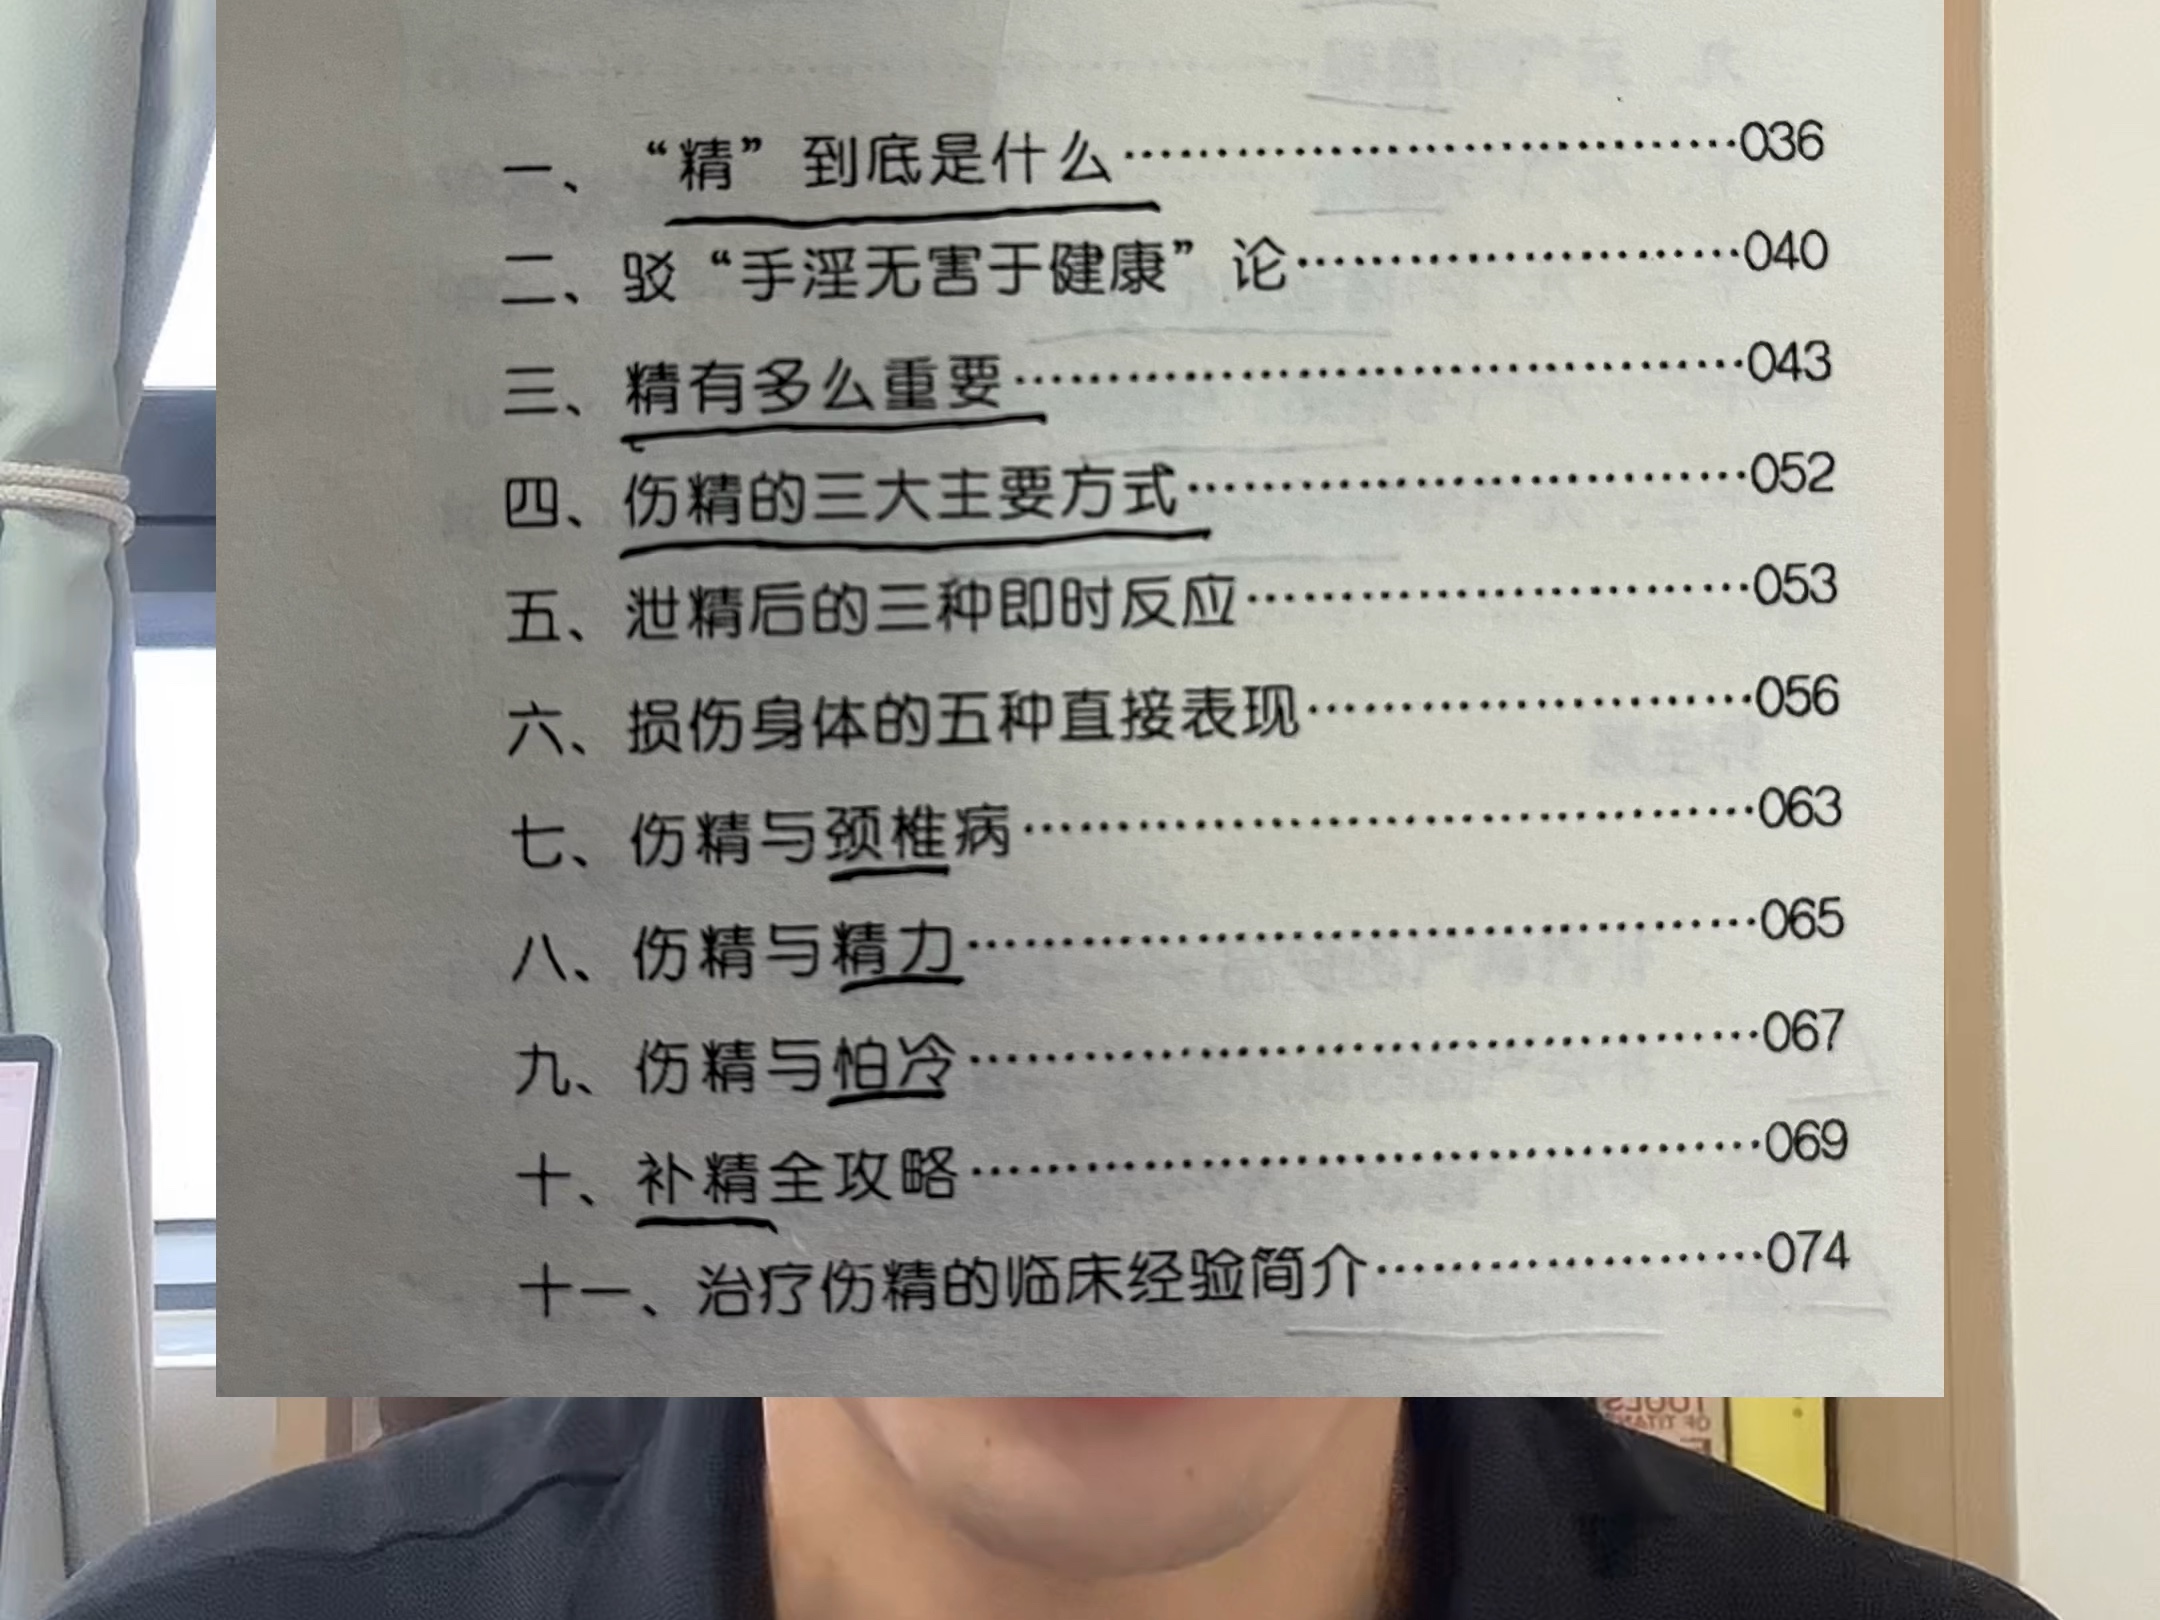 一、“精”到底是什么……036
二、驳“手淫无害于健康”论……040
三、精有多么重要……043
四、伤精的三大主要方式……052
五、泄精后的三种即时反应……053
六、损伤身体的五种直接表现……056
七、伤精与颈椎病……063
八、伤精与精力……065
九、伤精与怕冷……067
十、补精全攻略……069
十一、治疗伤精的临床经验简介……074
TOOLS
OF TITANS